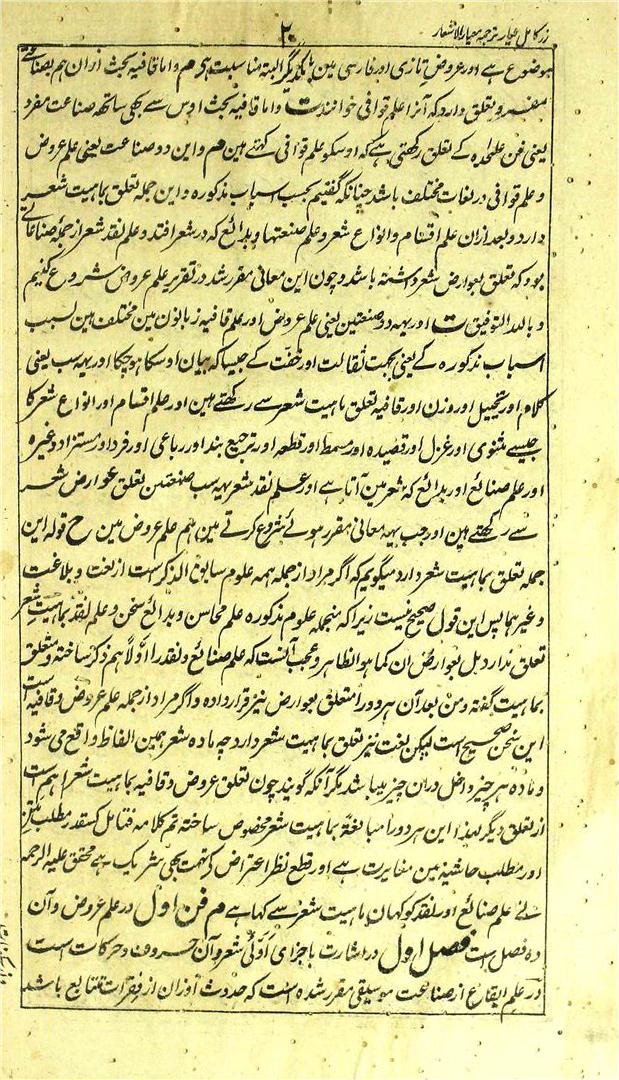 زر کامل عیار ترجمہ معیار الاشعار
۲۰
موضوع ہے اور عروض تازی اور فارسی مین بایکدیگر البتہ مناسبت ہی هم واما قافیہ بحث ازان هم بصناعتے
مفرد تعلق دارد کہ آنرا علم قوافی خوانند ت واما قافیہ بحث اوس سے بھی ساتھ صناعت مفرد
یعنی فن علحدہ کے تعلق رکھتی ہے کہ اوسکو علم قوافی کہتے ہین هم و این دو صناعت یعنی علم عروض
و علم قوافی در لغات مختلف باشد چنانکہ گفتیم بحسب اسباب مذکورہ و این جملہ تعلق بماہیت شعر
دارد و بعد ازان علم اقسام و انواع شعر و علم صنعتہا و بدائع کہ در شعر افتد و علم نقد شعر از جملۂ صناعاتے
بود کہ تعلق بعوارض شعر داشتہ باشد و چون این معانی مقرر شد در تقریر علم عروض شروع کنیم
و باللہ التوفیق ت اور یہہ دو صنعتین یعنی علم عروض اور علم قافیہ زبانون مین مختلف ہین بسبب
اسباب مذکورہ کے یعنی بجہت ثقالت اور خفت کے جیسا کہ بیان اوسکا ہو چکا اور یہہ سب یعنی
کلام اور تخییل اور وزن اور قافیہ تعلق ماہیت شعر سے رکھتے ہین اور علم اقسام اور انواع شعر کا
جیسے مثنوی اور غزل اور قصیدہ اور مسمط اور قطعہ اور ترجیع بند اور رباعی اور فرد اور مستزاد وغیرہ
اور علم صنائع اور بدائع کہ شعر مین آتا ہے اور علم نقد شعر یہہ سب صنعتین تعلق عوارض شعر
سے رکھتے ہین اور جب یہہ معانی مقرر ہوئے شروع کرتے ہین ہم علم عروض مین ح قولہ این
جملہ تعلق بماہیت شعر دارد میگویم کہ اگر مراد از جملہ ہمہ علوم سابق الذکر است از لغت و بلاغت
و غیرہما پس این قول صحیح نیست زیرا کہ منجملہ علوم مذکورہ علم محاسن و بدائع سخن و علم نقد بماہیت شعر
تعلق ندارد بل بعوارض آن کما ہو الظاہر و عجب آنست کہ علم صنائع و نقد را اولاً هم ذکر ساختہ و متعلق
بماہیت گفتہ و من بعد آن ہر دو را متعلق بعوارض نیز قرار دادہ و اگر مراد از جملہ علم عروض و قافیہ است
این سخن صحیح است لیکن لغت نیز تعلق بماہیت شعر دارد چہ مادہ شعر ہمین الفاظ واقع می شود
و مادہ ہر چیز داخل دران چیز میباشد مگر آنکہ گویند چون تعلق عروض و قافیہ بماہیت شعر اہم است
از تعلق دیگر لہذا این ہر دو را مبالغۃً بماہیت شعر مخصوص ساختہ تم کلامہ فتامل کسقدر مطلب متن
اور مطلب حاشیہ مین مغایرت ہے اور قطع نظر اعتراض کر تہمت بھی شریک ہے محقق علیہ الرحمہ
نے علم صنائع اور نقد کو کہان ماہیت شعر سے کہا ہے هم فن اول در علم عروض و آن
دہ فصل است فصل اول در اشارت باجزای اَوَّلی شعر و آن حروف و حرکات است
در علم ایقاع از صناعت موسیقی مقرر شدہ است کہ حدوث اوزان از نقرات متتابع باشد